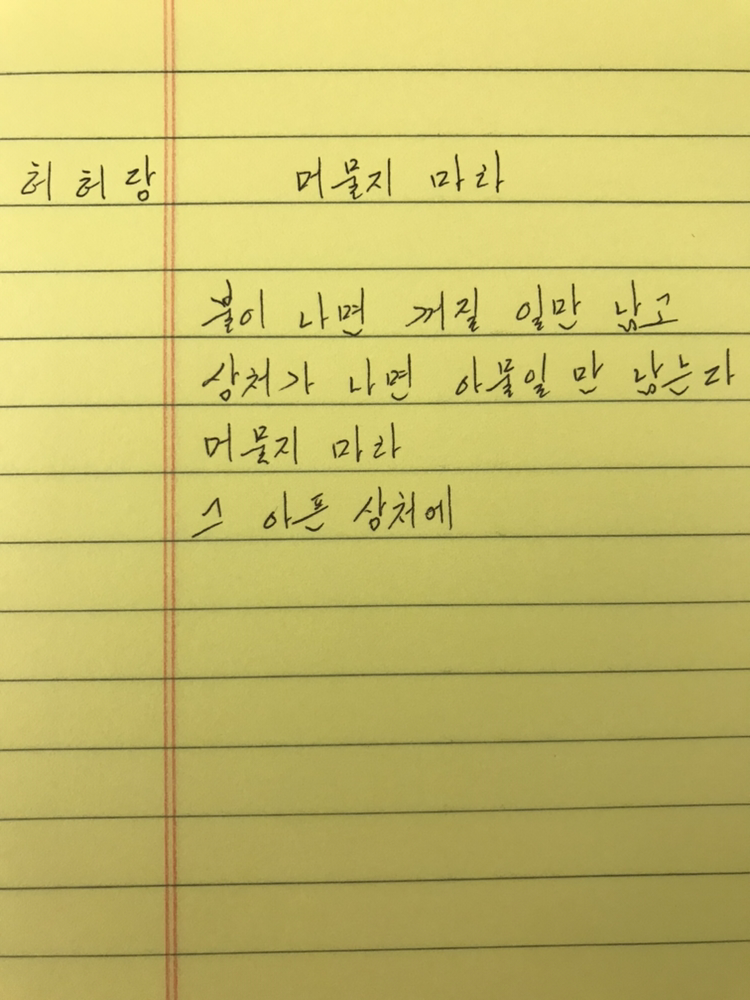 허 허 당 머물지 마라
불이 나면 꺼질 일만 남고
상처가 나면 아물일 만 남는다
머물지 마라
그 아픈 상처에